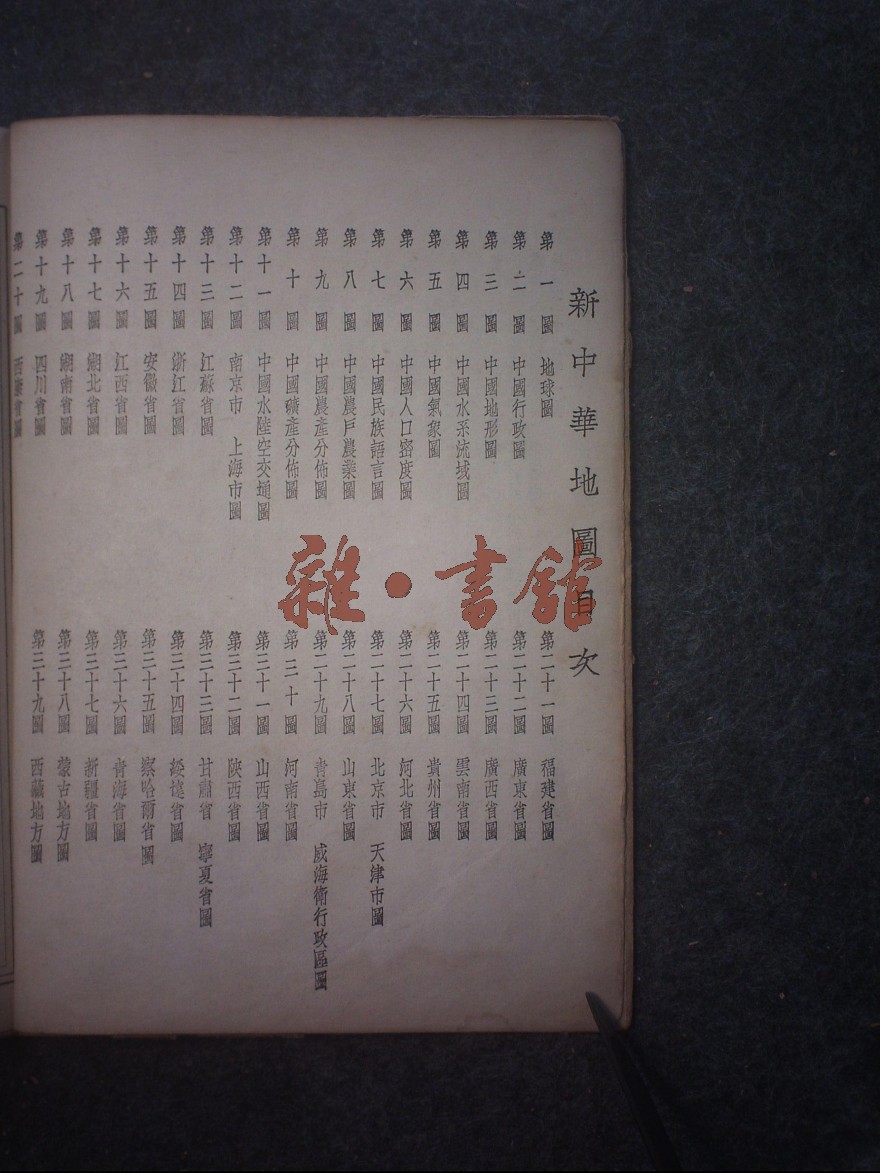 新中華地圖目次
第一圖 地球圖
第二圖 中國行政圖
第三圖 中國地形圖
第四圖 中國水系流域圖
第五圖 中國氣象圖
第六圖 中國人口密度圖
第七圖 中國民族語言圖
第八圖 中國農戶農業圖
第九圖 中國農產分佈圖
第十圖 中國礦產分佈圖
第十一圖 中國水陸空交通圖
第十二圖 南京市 上海市圖
第十三圖 江蘇省圖
第十四圖 浙江省圖
第十五圖 安徽省圖
第十六圖 江西省圖
第十七圖 湖北省圖
第十八圖 湖南省圖
第十九圖 四川省圖
第二十圖 西康省圖
第二十一圖 福建省圖
第二十二圖 廣東省圖
第二十三圖 廣西省圖
第二十四圖 雲南省圖
第二十五圖 貴州省圖
第二十六圖 河北省圖
第二十七圖 北京市 天津市圖
第二十八圖 山東省圖
第二十九圖 青島市 威海衛行政區圖
第三十圖 河南省圖
第三十一圖 山西省圖
第三十二圖 陝西省圖
第三十三圖 甘肅省 寧夏省圖
第三十四圖 綏遠省圖
第三十五圖 察哈爾省圖
第三十六圖 青海省圖
第三十七圖 新疆省圖
第三十八圖 蒙古地方圖
第三十九圖 西藏地方圖
雜·書館